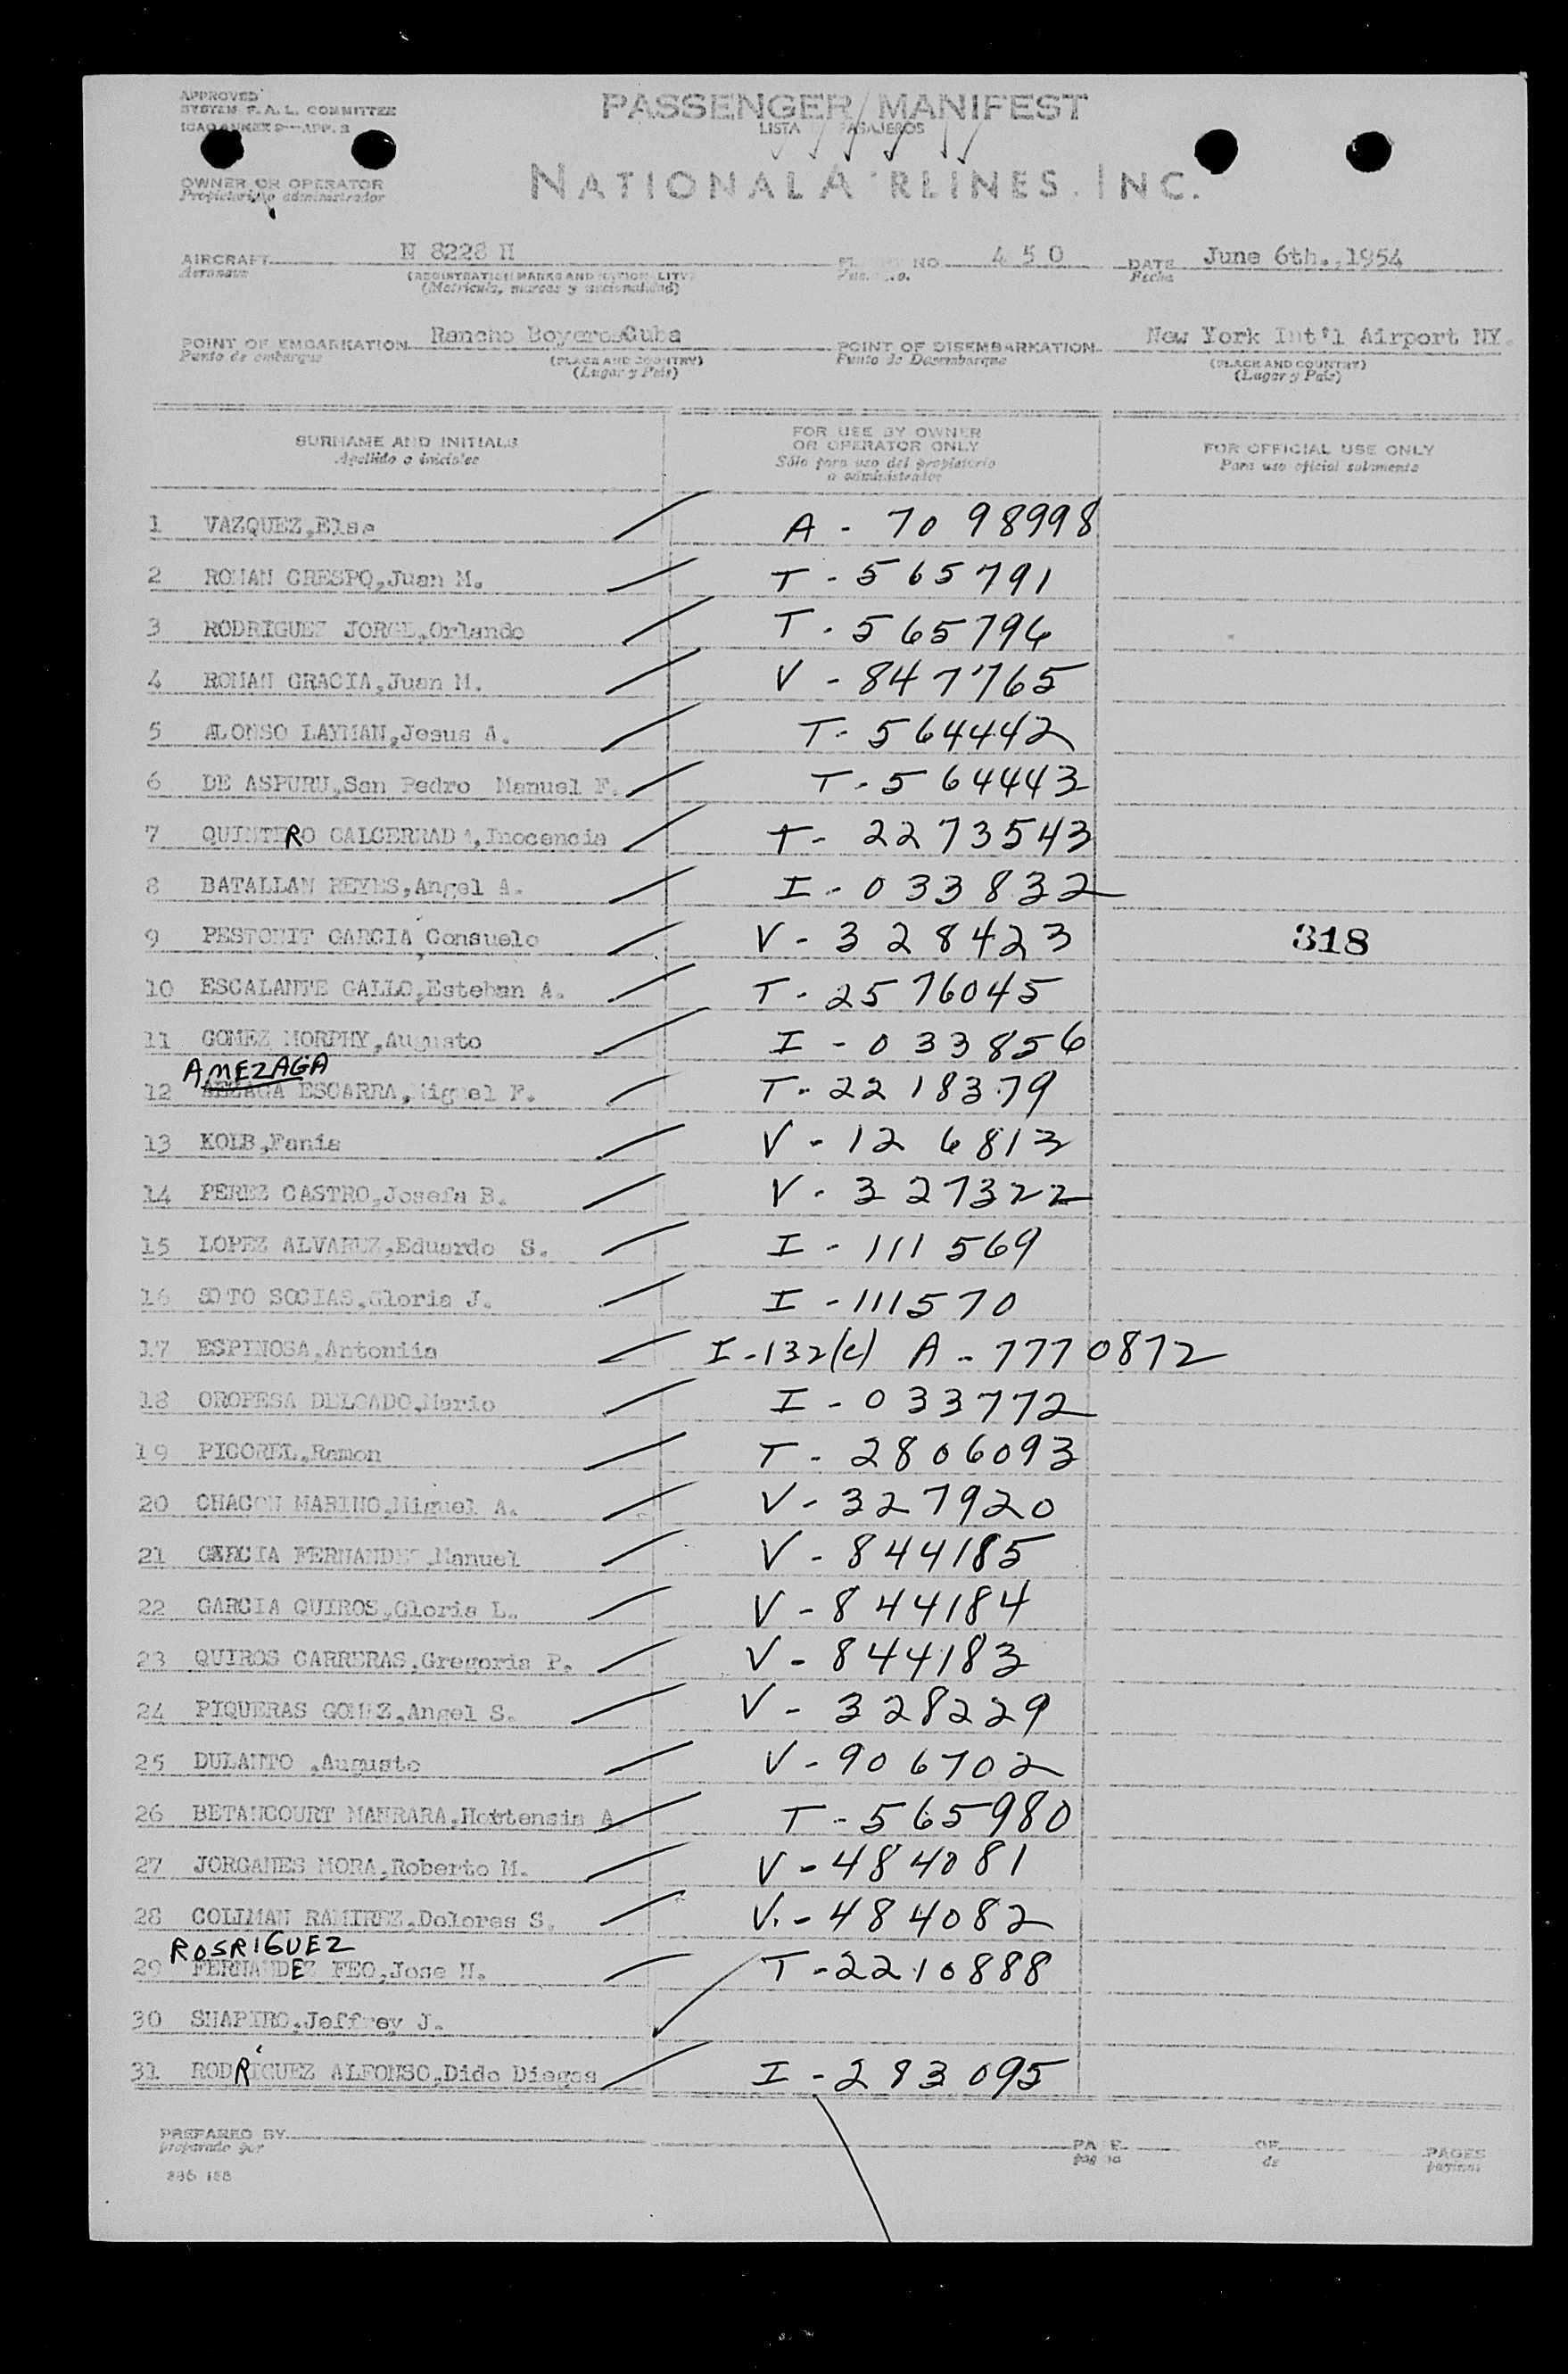 APPROVED
SYSTEM F.A.L. COMMITTEE
ICAO ANNEX 9—APP. 3
PASSENGER MANIFEST
LISTA PASAJEROS
OWNER OR OPERATOR
Propietario o administrador
NATIONAL A RLINES, INC.
AIRCRAFT N 8228 H NO. 4 5 0 DATE June 6th.,1954
Aeronave (REGISTRATION MARKS AND NATIONALITY) Fecha
(Matricula, marcas y nacionalidad)
POINT OF EMBARKATION Rancho Boyeros Cuba POINT OF DISEMBARKATION New York Int'l Airport NY.
Punto de embarque (PLACE AND COUNTRY) Punto de Desembarque (PLACE AND COUNTRY)
(Lugar y País) (Lugar y País)
SURNAME AND INITIALS FOR USE BY OWNER OR OPERATOR ONLY FOR OFFICIAL USE ONLY
Apellido o iniciales Sólo para uso del propietario o administrador Para uso oficial solamente
1 VAZQUEZ,Elsa A - 7098998
2 ROMAN CRESPO,Juan M. T - 565791
3 RODRIGUEZ JORGE,Orlando T - 565796
4 ROMAN GRACIA,Juan M. V - 847765
5 ALONSO LAYMAN,Jesus A. T - 564442
6 DE ASPURU,San Pedro Manuel F. T - 564443
7 QUINTERO CALCERRADA,Inocencia T - 2273543
8 BATALLAN REYES,Angel A. I - 033832
9 PESTONIT GARCIA,Consuelo V - 328423 318
10 ESCALANTE GALLO,Esteban A. T - 2576045
11 GOMEZ MORPHY,Augusto I - 033856
AMEZAGA
12 AEZAGA ESCARRA,Miguel F. T - 2218379
13 KOLB,Fania V - 126813
14 PEREZ CASTRO,Josefa B. V - 327322
15 LOPEZ ALVAREZ,Eduardo S. I - 111569
16 SOTO SOCIAS,Gloria J. I - 111570
17 ESPINOSA,Antoniia I-132(c) A - 7770872
18 OROPESA DELGADO,Mario I - 033772
19 PICOREL,Ramon T - 2806093
20 CHACON MARINO,Miguel A. V - 327920
21 GARCIA FERNANDEZ,Manuel V - 844185
22 GARCIA QUIROS,Gloria L. V - 844184
23 QUIROS CARRERAS,Gregoria P. V - 844183
24 PIQUERAS GOMEZ,Angel S. V - 328229
25 DULANTO ,Augusto V - 906702
26 BETANCOURT MANRARA,Hortensia A T - 565980
27 JORGANES MORA,Roberto M. V - 484081
28 COLLMAN RAMIREZ,Dolores S. V. - 484082
ROSRIGUEZ
29 FERNANDEZ FEO,Jose N. T - 2210888
30 SHAPIRO,Jeffrey J.
31 RODRIGUEZ ALFONSO,Dido Diegos I - 283095
PREPARED BY PA E OF PAGES
preparado por de paginas